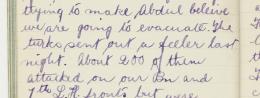 trying to make Abdul beleive
we are going to evacuate. The
turks sent out a feeler last
night. About 200 of them
attacked on our Bn and
7th L.H. fronts but were